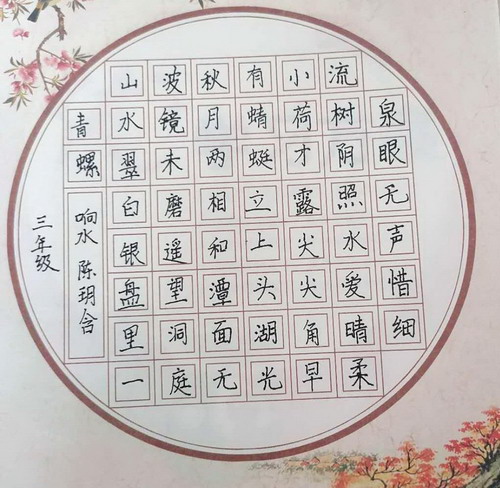 泉眼无声惜细
流树阴照水爱晴柔
小荷才露尖尖角早
有蜻蜓立上头湖光
秋月两相和潭面无
波镜未磨遥望洞庭
山水翠白银盘里一
青螺
响水 陈玥含
三年级